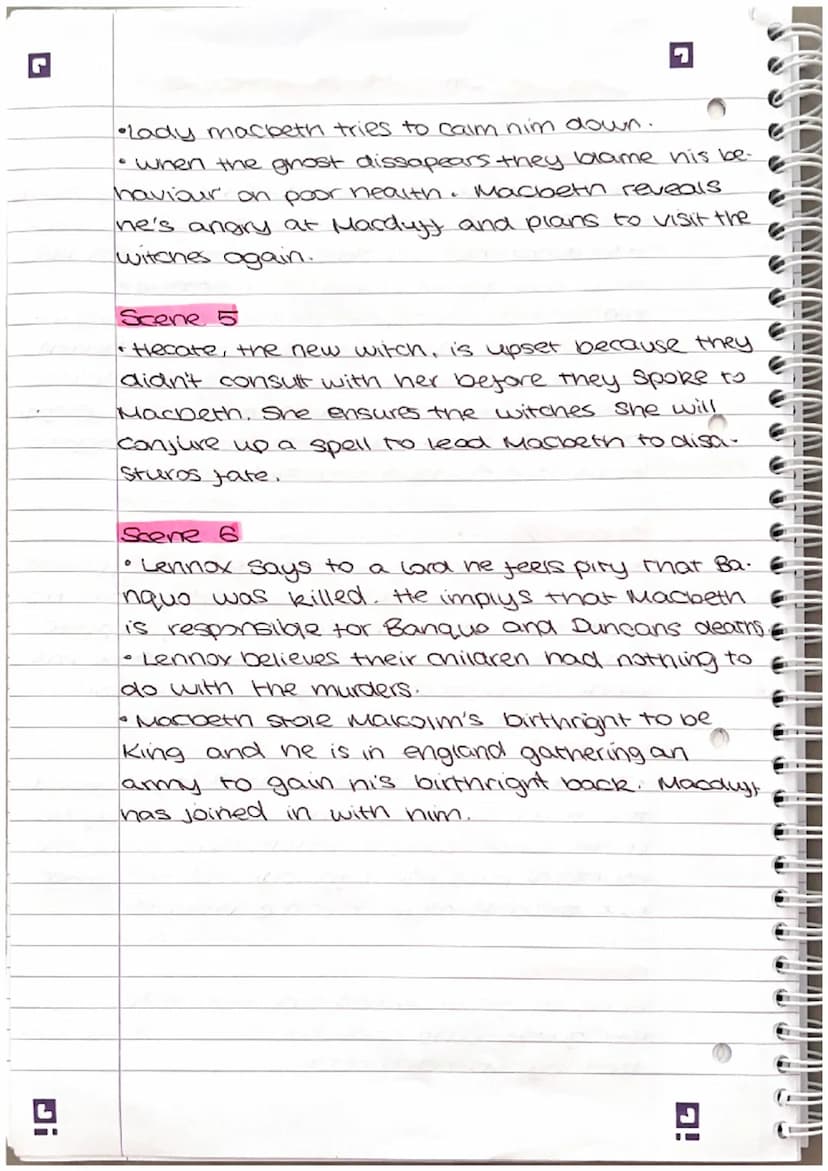 •Lady macbeth tries to calm him down.
• When the ghost dissapears they blame his be-
haviour on poor health. Macbeth reveals
he's angry at Macduff and plans to visit the
witches again.
Scene 5
• Hecate, the new witch, is upset because they
didn't consult with her before they spoke to
Macbeth. She ensures the witches she will
conjure up a spell to lead Macbeth to disa-
sturos fate.
Scene 6
• Lennox says to a lord he feels pity that Ba-
nquo was killed. He implys that Macbeth
is responsible for Banquo and Duncans deaths.
• Lennox believes their children had nothing to
do with the murders.
• Macbeth stole Malcolm's birthright to be
King and he is in england gathering an
army to gain his birthright back. Macduff
has joined in with him.